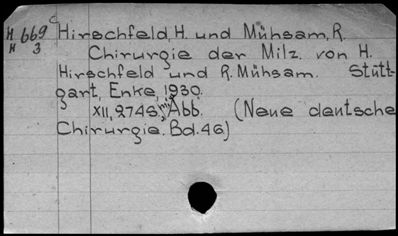 H 669 c Hirschfeld, H. und Mühsam, R.
H 3 Chirurgie der Milz. von H.
Hirschfeld und R. Mühsam. Stutt-
gart, Enke, 1930.
XII, 274S, mit Abb. (Neue deutsche
Chirurgie. Bd. 46)